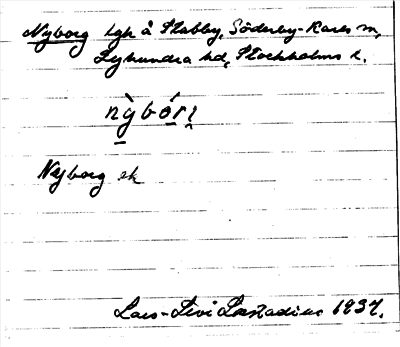 Nyborg lgh å Stabby, Söderby-Karls sn,
Lyhundra hd, Stockholms l.
nỳbóri̯
Nyborg ek
Lars-Levi Læstadius 1937.